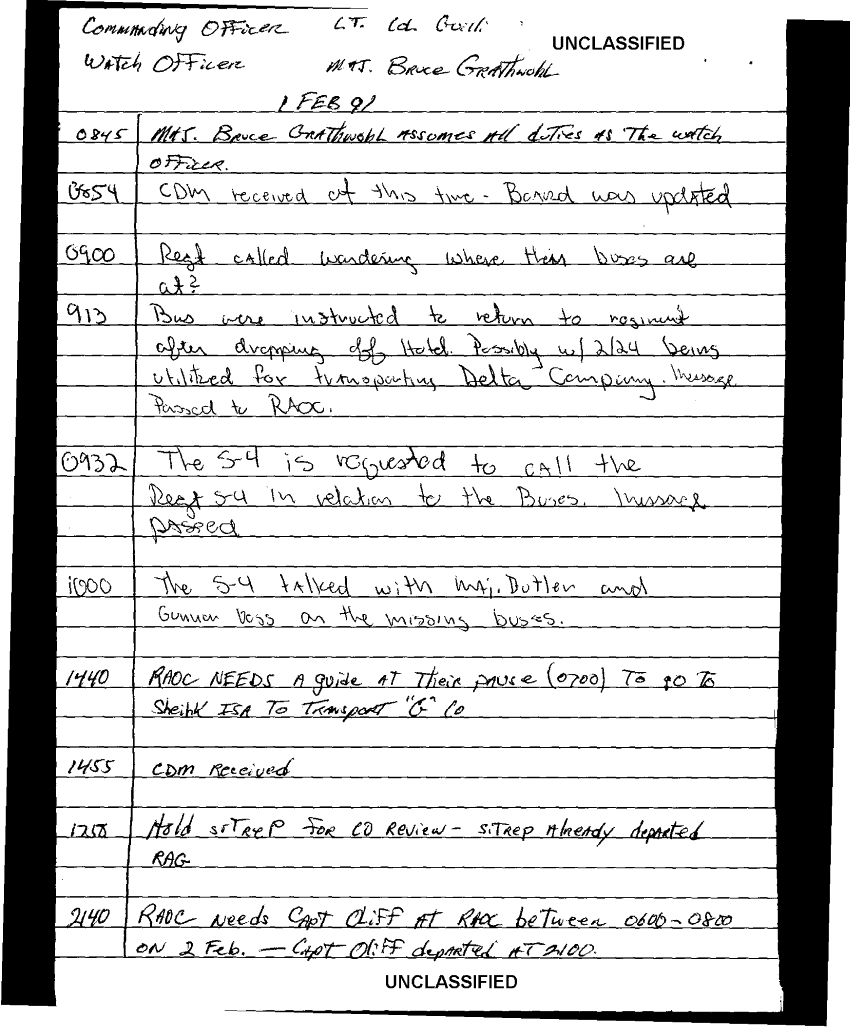 Commanding Officer LT. Col.
UNCLASSIFIED
Watch Officer MAJ. Bruce Grathwohl
1 FEB 91
0845 MAJ. Bruce Grathwohl Assumes All duties AS The watch
officer.
0854 CDM received at this time - Board was updated
0900 Regt called wandering where their buses are
at?
913 Bus were instructed to return to regiment
after dropping off Hotel. Possibly w/ 2/24 being
utilized for transporting Delta Company. Message
Passed to RAOC.
0932 The S-4 is requested to call the
Regt S-4 in relation to the Buses. Message
passed
1000 The S-4 talked with Maj. Butler and
Gunner on the missing buses.
1440 RAOC NEEDS A guide AT Their pause (0700) To go To
Sheihk ISA To Transport "G" Co
1455 CDM Received
Hold SITREP FOR CO Review - SITREP Already departed
RAG
2140 RAOC Needs CAPT Oliff AT RAOC beTween 0600-0800
ON 2 Feb. — CAPT Oliff departed AT 2100.
UNCLASSIFIED